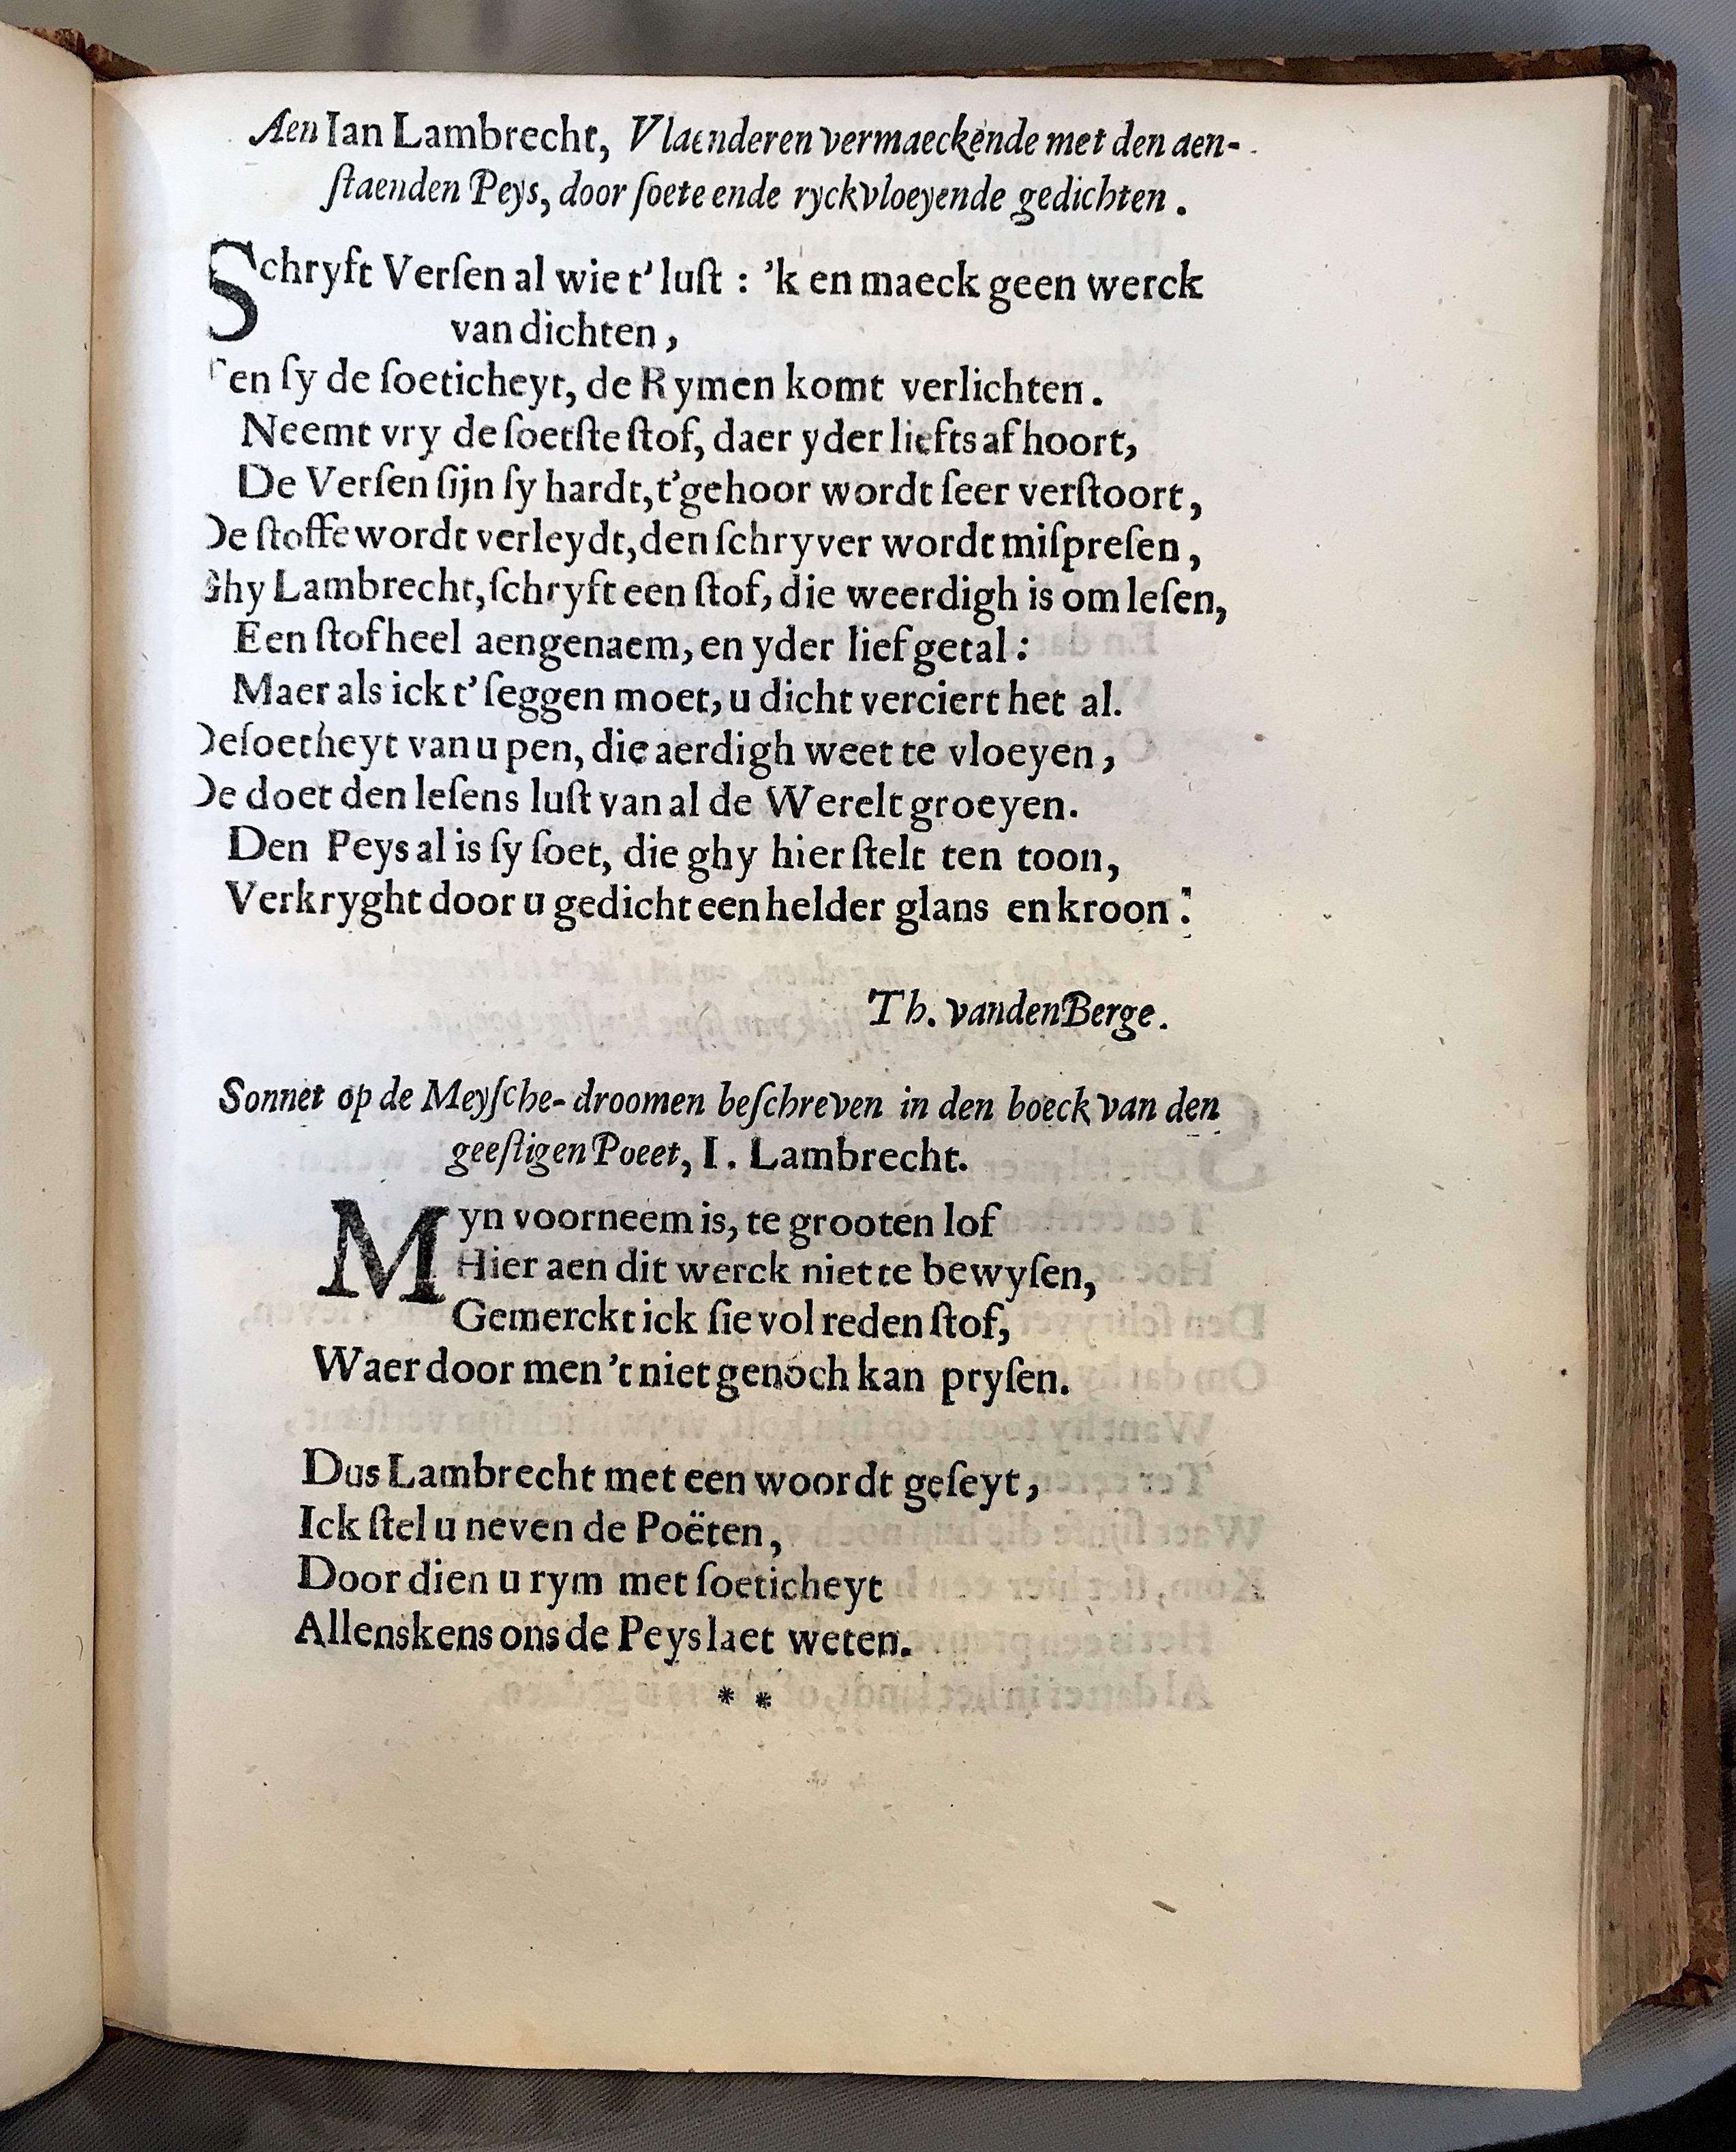 Aen Ian Lambrecht, Vlaenderen vermaeckende met den aen-
ſtaenden Peys, door ſoete ende ryckvloeyende gedichten.
Schryft Verſen al wie t' luſt : 'k en maeck geen werck
van dichten,
Ten ſy de ſoeticheyt, de Rymen komt verlichten.
Neemt vry de ſoetſte ſtof, daer yder liefts af hoort,
De Verſen ſijn ſy hardt, t'gehoor wordt ſeer verſtoort,
De ſtoffe wordt verleydt, den ſchryver wordt miſpreſen,
Ghy Lambrecht, ſchryft een ſtof, die weerdigh is om leſen,
Een ſtof heel aengenaem, en yder lief getal :
Maer als ick t' ſeggen moet, u dicht verciert het al.
De ſoetheyt van u pen, die aerdigh weet te vloeyen,
De doet den leſens luſt van al de Werelt groeyen.
Den Peys al is ſy ſoet, die ghy hier ſtelt ten toon,
Verkryght door u gedicht een helder glans en kroon.
Th. vanden Berge.
Sonnet op de Meyſche-droomen beſchreven in den boeck van den
geeſtigen Poeet, I. Lambrecht.
Myn voorneem is, te grooten lof
Hier aen dit werck niet te bewyſen,
Gemerckt ick ſie vol reden ſtof,
Waer door men 't niet genoch kan pryſen.
Dus Lambrecht met een woordt geſeyt,
Ick ſtel u neven de Poëten,
Door dien u rym met ſoeticheyt
Allenskens ons de Peys laet weten.
* *